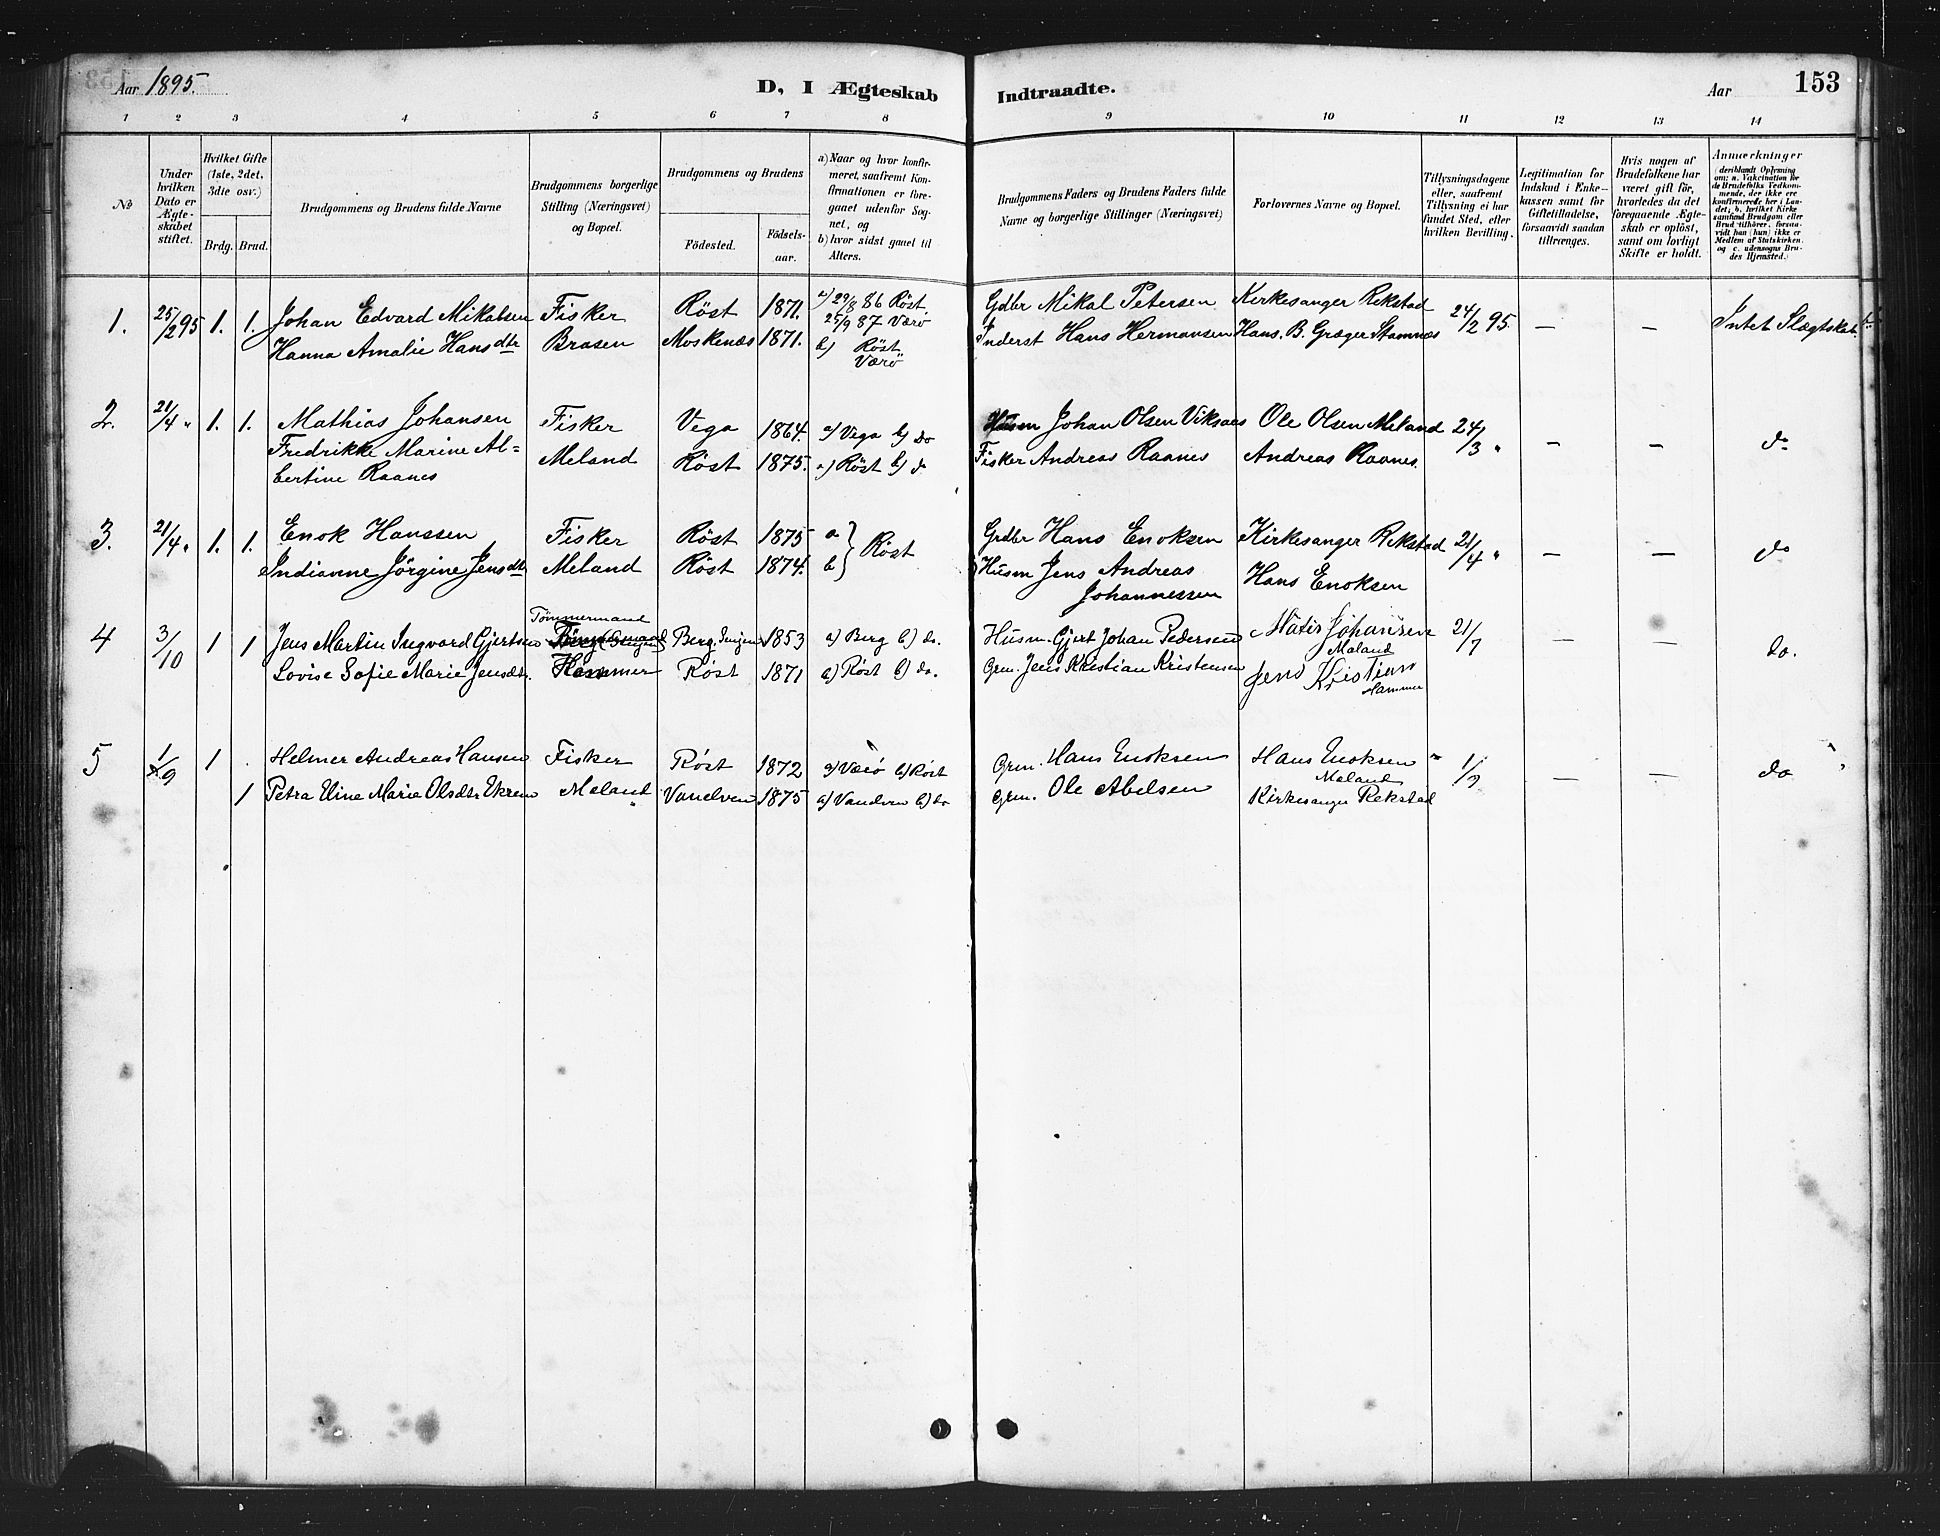 Aar 1895. D, I Ægteskab Indtraadte. Aar 153
1 2 3 4 5 6 7 8 9 10 11 12 13 14
No
Under hvilken Dato er Ægteskabet stiftet.
Hvilket Gifte (1ste, 2det, 3die osv.)
Brdg. Brud.
Brudgommens og Brudens fulde Navne
Brudgommens borgerlige Stilling (Næringsvei) og Bopæl.
Brudgommens og Brudens
Födested. Födsels-aar.
a) Naar og hvor konfirmeret, saafremt Konfirmationen er foregaaet udenfor Sognet, og
b) hvor sidst gaaet til Alters.
Brudgommens Faders og Brudens Faders fulde Navne og borgerlige Stillinger (Næringsvei)
Forlovernes Navne og Bopæl.
Tillysningsdagene eller, saafremt Tillysning ei har fundet Sted, efter hvilken Bevilling.
Legitimation for Indskud i Enkekassen samt for Giftetilladelse, forsaavidt saadan tiltrænges.
Hvis nogen af Brudefolkene har været gift för, hvorledes da det foregaaende Ægteskab er oplöst, samt om lovligt Skifte er holdt.
Anmærkninger (deriblandt Oplysning om: a. Vakcination for de Brudefolks Vedkommende, der ikke ere konfirmerede her i Landet, b. hvilket Kirkesamfund Brudgom eller Brud tilhörer, forsaavidt han (hun) ikke er Medlem af Statskirken, og c. udensogns Brudes Hjemsted.)
1. 25/2 95 1. 1. Johan Edvard Mikalsen Fisker Röst 1871. a) 29/8 86 Röst. Gdbr Mikal Petersen Kirkesanger Rekstad 24/2 95. — — Intet Slægtskab
25/9 87 Værö
Hanna Amalie Hansdtr Brasen Moskenæs 1871. b) Röst Inderst Hans Hermansen Hans. B. Græger Stamnes
Værö
2. 21/4 " 1. 1. Mathias Johansen Fisker Vega 1864. a) Vega b) do Husm Johan Olsen Viksaas Ole Olsen Meland 24/3 " — — do
Fredrikke Marine Al= Meland Röst 1875. a) Röst b) do Fisker Andreas Raanes Andreas Raanes.
bertine Raanes
3. 21/4 " 1. 1. Enok Hanssen Fisker Röst 1875 a } Röst Grdbr Hans Enoksen Kirkesanger Rekstad 21/4 " — — do
Indianne Jörgine Jensdtr Meland Röst 1874. b Husm Jens Andreas Hans Enoksen
Johannessen
Tömmermand
4 3/10 1 1 Jens Martin Ingvard Gjertsen Berg. Senjen 1853 a) Berg b) do. Husm. Gjert Johan Pedersen Matis Johansen 21/7 — — do.
Meland
Lovise Sofie Marie Jensdtr. Hammer Röst 1871 a) Röst b) do. Grm. Jens Kristian Kristensen Jens Kristian
Hammer
5 1/9 1 . Helmer Andreas Hansen Fisker Röst 1872 a) Værö b) Röst Grm. Hans Enoksen Hans Enoksen " 1/9 — — do
Meland
1 Petra Eline Marie Olsdtr Ekrem Meland " Vanelven 1875 a) Vanelven b) do Grm. Ole Abelsen Kirkesanger Rekstad